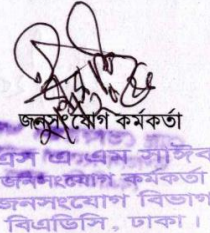 জনসংযোগ কর্মকর্তা
এস এ এম সাঈব
জনসংযোগ কর্মকর্তা
জনসংযোগ বিভাগ
বিএডিসি, ঢাকা।